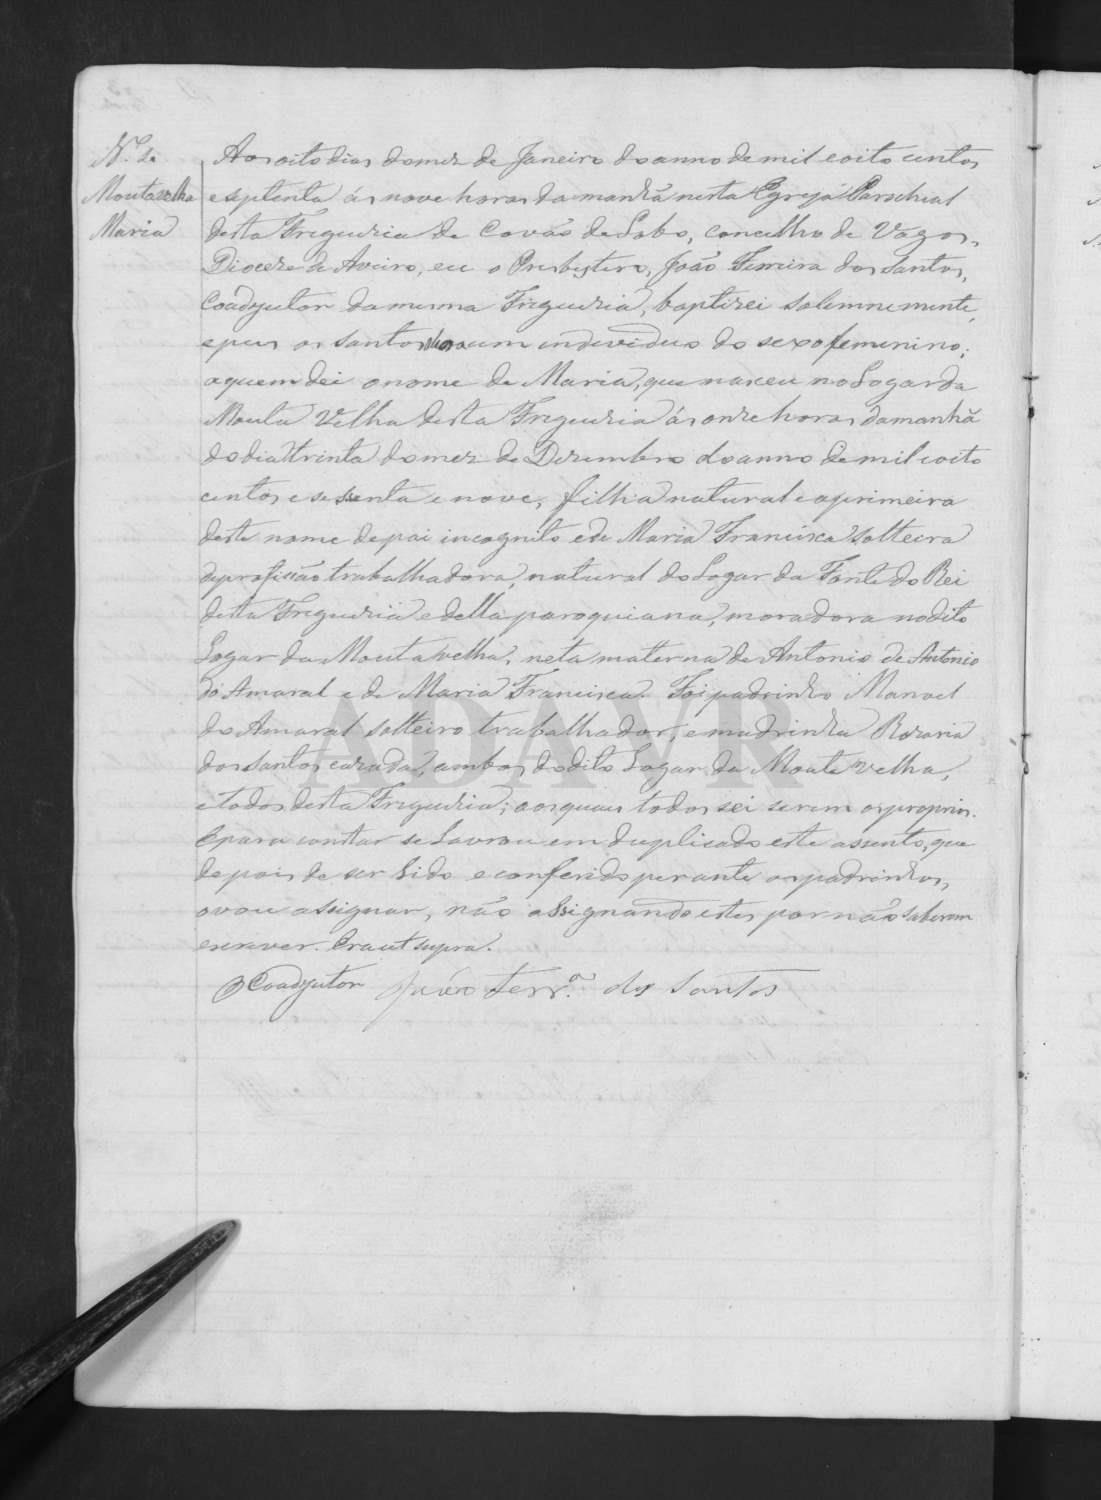 N.º 2
Moutavelha
Maria
Aos oito dias do mez de Janeiro do anno de mil e oito centos
e septenta ás nove horas da manhã nesta Egreja Parochial
desta Freguezia de Covão do Lobo, concelho de Vagos,
Diocese de Aveiro, eu o Presbytero, João Ferreira dos Santos,
Coadjutor da mesma Freguezia, baptizei solemnemente,
e puz os santos um individuo do sexo femenino;
a quem dei o nome de Maria, que nasceu no Logar da
Mouta Velha desta Freguezia ás onze horas da manhã
do dia trinta do mez de Dezembro do anno de mil e oito
centos e sessenta e nove, filha natural e a primeira
deste nome de pai incognito e de Maria Francisca solteira
de profissão trabalhadora, natural do Logar da Fonte do Rei
desta Freguezia e della paroquiana, moradora no dito
Logar da Mouta velha, neta materna de Antonio de Antonio
do Amaral e de Maria Francisca. Foi padrinho Manoel
do Amaral solteiro trabalhador, e madrinha Rozaria
dos Santos cazada, ambos do dito Logar da Mouta velha,
e todos desta Freguezia; aos quaes todos sei serem os proprios.
E para constar se lavrou em duplicado este assento, que
depois de ser lido e conferido perante os padrinhos,
o vou assignar, não assignando estes por não saberem
escrever. Era ut supra.
O Coadjutor João Ferr.ª dos Santos
ADAVR